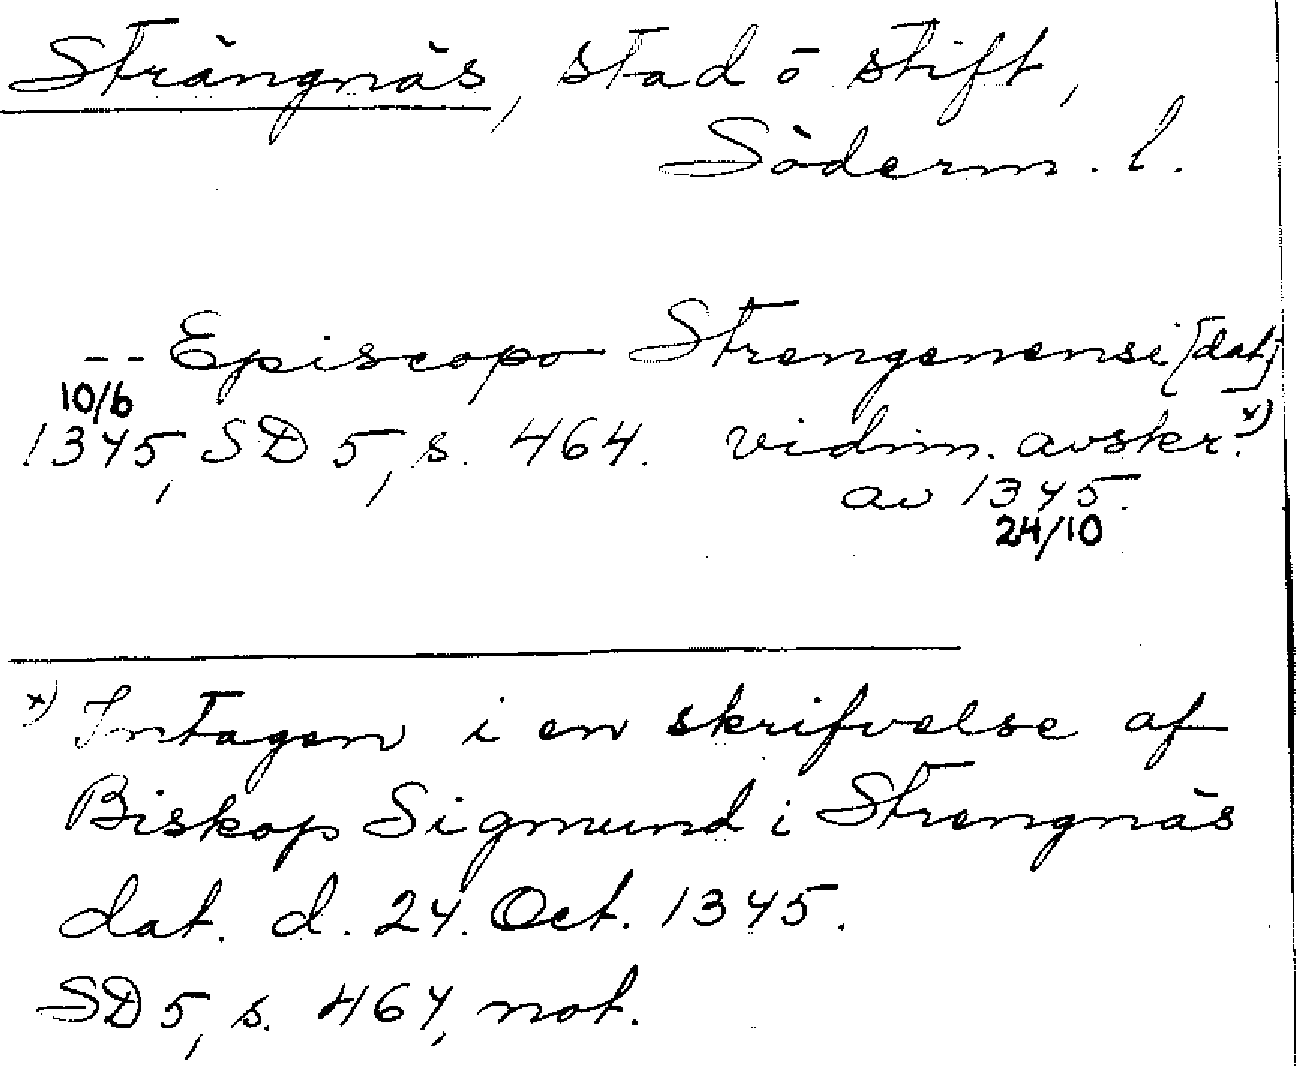 Strängnäs, stad o stift,
Söderm. l.
-- Episcopo Strengenensi [dat.]
10/6
1345, SD 5, s. 464. vidim. avskr. x)
av 1345.
24/10
x) Intagen i en skrifvelse af
Biskop Sigmund i Strengnäs
dat. d. 24. Oct. 1345.
SD 5, s. 464, not.